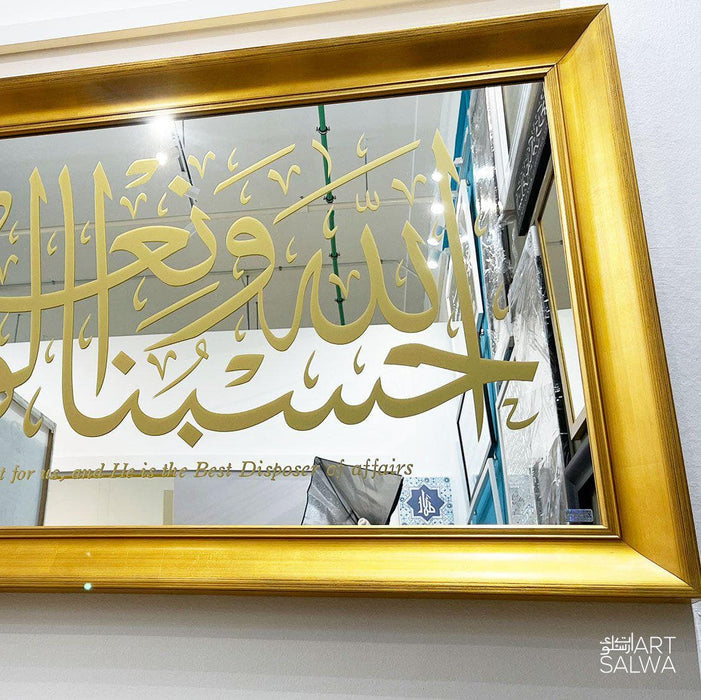 حسبنا الله ونعم
for us, and He is the Best Disposer of affairs
ART
SALWA